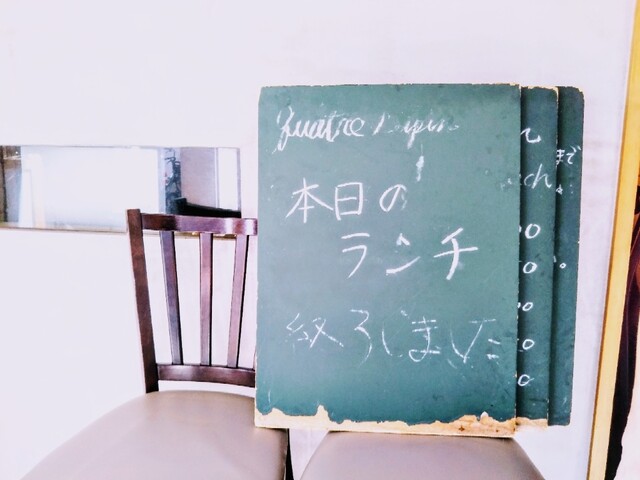 Quatre
本日の
ランチ
終了しました
まで
ch